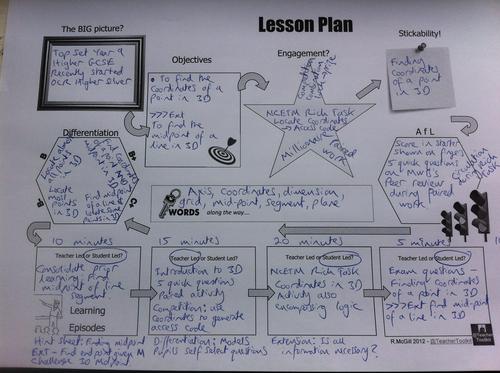 Lesson Plan
The BIG picture?
Top Set Year 9
Higher GCSE
Recently started
OCR Higher Silver
Objectives
• To find the
coordinates of a
point in 3D
>>> Ext
To find the
midpoint of a
line in 3D
Engagement?
Competition
NCETM Rich Task
Locate Coordinates
→ Access code
Millionaire
Paired
work
Stickability!
Finding
coordinates
of a point
in 3D
Differentiation
B
B+
C+
Locate
most
points
in 3D
Find midpoint
of a line
WORDS along the way....
Axis, coordinates, dimension,
grid, mid-point, segment, plane
A f L
Score in starter
shown on fingers
5 quick questions
on MWB's
Peer review
during Paired
work
Circulation
during Rich
Task
10 minutes
15 minutes
20 minutes
5 minutes
Teacher Led or Student Led?
Consolidate prior
learning from
midpoint of line
segment
Teacher Led or Student Led?
Introduction to 3D
5 quick questions
Paired activity
Competition: use
coordinates to generate
access code
Teacher Led or Student Led?
NCETM Rich Task
Coordinates in 3D
Activity also
encompassing logic
Teacher Led or Student Led?
Exam questions -
Finding coordinates
of a point in 3D
>>> Ext find mid-point
of a line in 3D
Learning
Episodes
Hint sheet: Finding midpoint
EXT - Find endpoint given M
Challenge 3D Midpoint
Differentiation: Models
Pupils self select questions
Extension: Is all
information necessary?
R.McGill 2012 - @TeacherToolkit
@Teacher
Toolkit